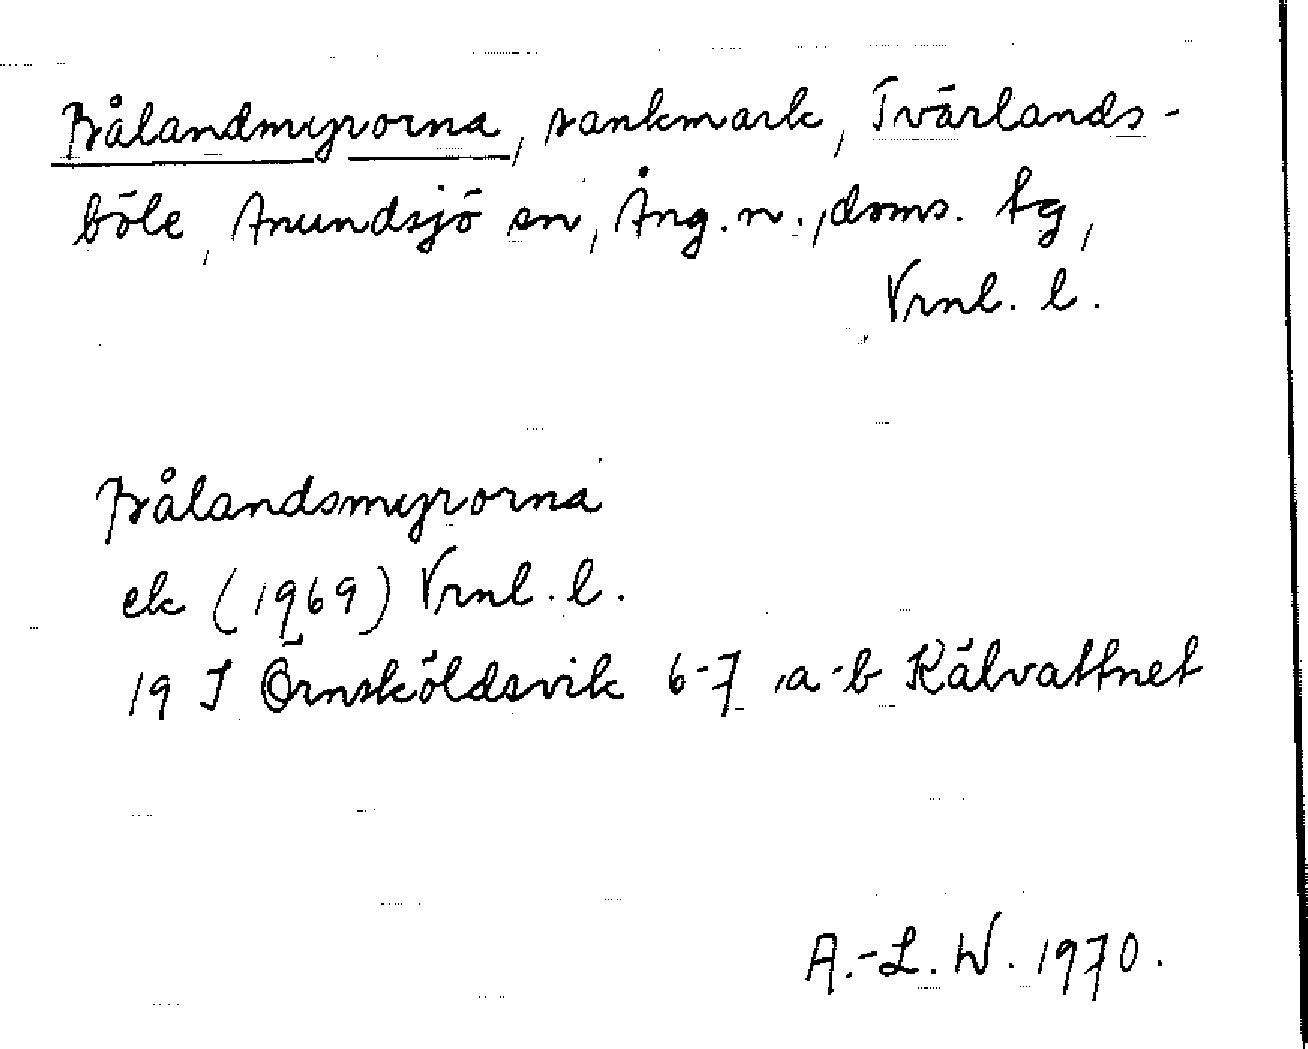 Brålandmyrorna, sankmark, Tvärlands-
böle, Anundsjö sn, Ång. n., doms. tg,
Vrnl. l.
Brålandsmyrorna
ek (1969) Vrnl. l.
19 I Örnsköldsvik 6-7 a-b Kälvattnet
A.-L. W. 1970.